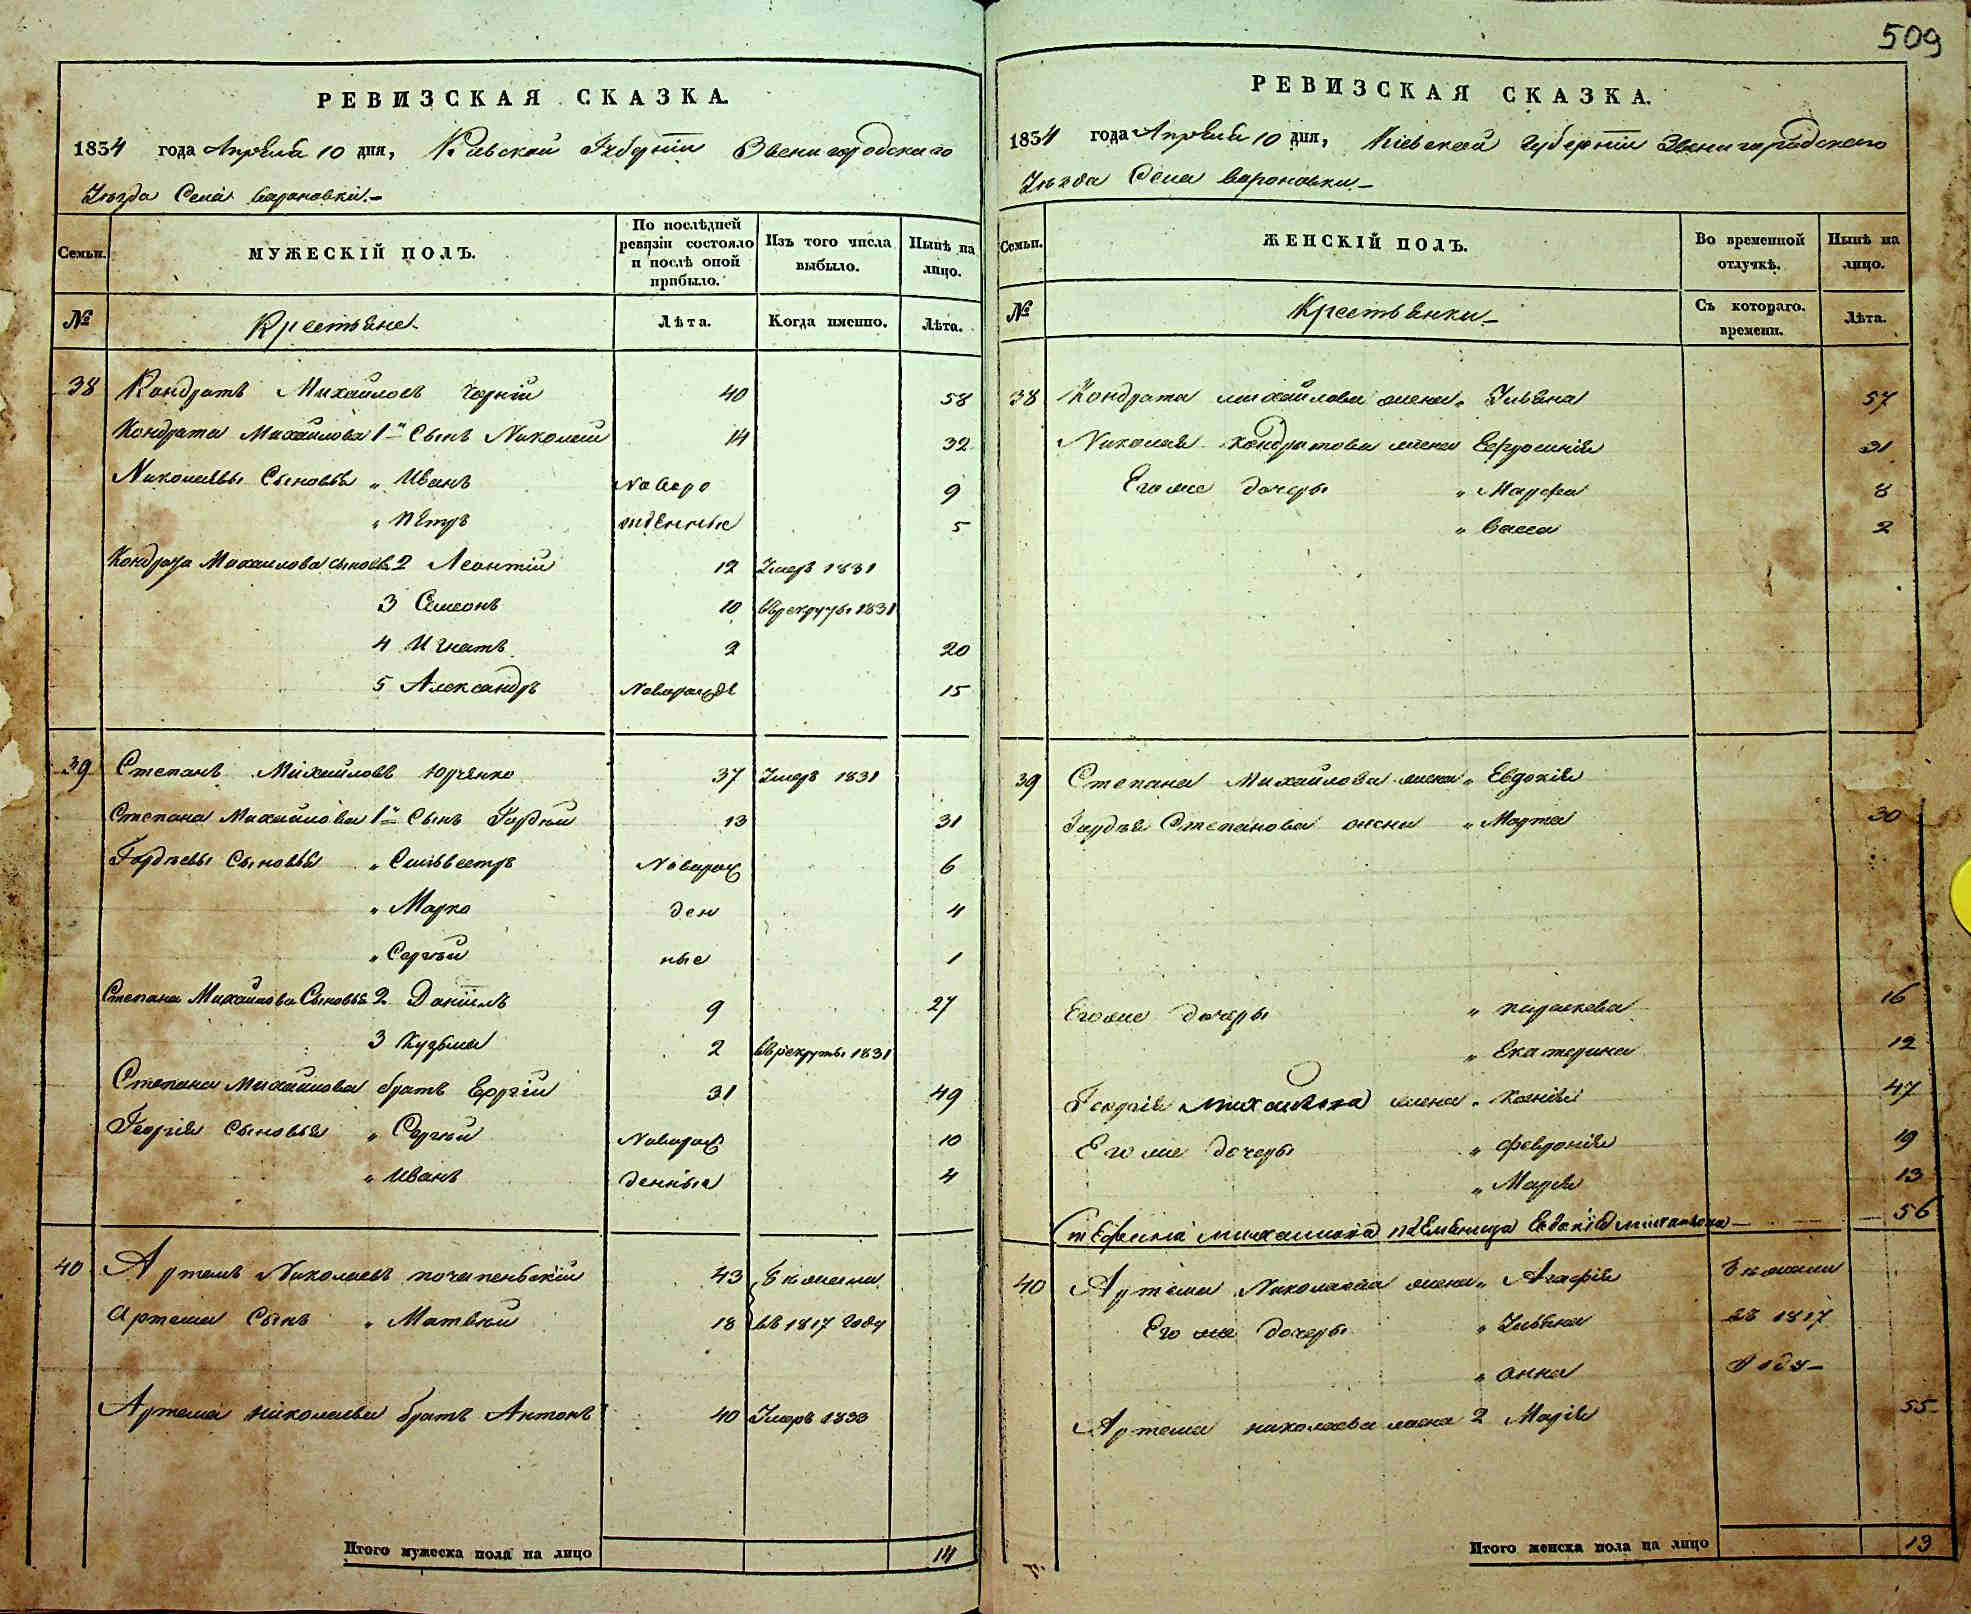 РЕВИЗСКАЯ СКАЗКА.
1834 года Апреля 10 дня, Киевской Губернии Звенигородскаго
Уезда Села Вороновки.
Семьи. МУЖЕСКІЙ ПОЛЪ. По послѣдней ревизіи состояло и послѣ оной прибыло. Изъ того числа выбыло. Нынѣ на лицо.
№ Крестьяне. Лѣта. Когда именно. Лѣта.
38 Кондратъ Михайловъ Чорній 40 58
Кондрата Михайлова 1й Сынъ Николай 14 32
Николаевы Сыновья „ Иванъ Новоро 9
„ Петръ жденные 5
Кондрата Михайлова сыновья 2 Леонтій 12 Умеръ 1831
3 Семионъ 10 в рекруты 1831
4 Игнатъ 2 20
5 Александръ Новорожде 15
39 Степанъ Михайловъ Юрченко 37 Умеръ 1831
Степана Михайлова 1й Сынъ Гордѣй 13 31
Гордѣевы Сыновья „ Сильвестръ Новорож 6
„ Марко ден 4
„ Сергѣй ные 1
Степана Михайлова Сыновья 2 Даніилъ 9 27
3 Кузьма 2 в рекруты 1831
Степана Михайлова братъ Еоргій 31 49
Георгія Сыновья „ Сергѣй Новорож 10
„ Иванъ денные 4
40 Артемъ Николаевъ 43
Артема Сынъ „ Матвѣй 18 въ 1817 Году
Артема Николаева братъ Антонъ 40 Умеръ 1833
Итого мужеска пола на лицо 14
509
РЕВИЗСКАЯ СКАЗКА.
1834 года Апреля 10 дня, Кіевской Губерніи Звенигородскаго
Уезда Села Вороновки
Семьи. ЖЕНСКІЙ ПОЛЪ. Во временной отлучкѣ. Нынѣ на лицо.
№ Крестьянки Съ котораго. времени. Лѣта.
38 Кондрата Михайлова жена „ Ульяна 57
Николая Кондратова жена Ефросинія 31
Его же дочеры „ Марфа 8
„ Васса 2
39 Степана Михайлова жена „ Евдокія
Гордѣя Степанова жена „ Марта 30
Его же дочеры „ Параскева 16
„ Екатерина 12
Георгія Михайлова жена „ Ксенія 47
Его же дочеры „ Февронія 19
„ Марія 13
Михайлова Евдокія Михайлова 56
40 Артема Николаева жена „ Агафія
Его же дочеры „ Ульяна въ 1817
„ Анна Году
Артема Николаева жена 2 Марія 55
Итого женска пола на лицо 13